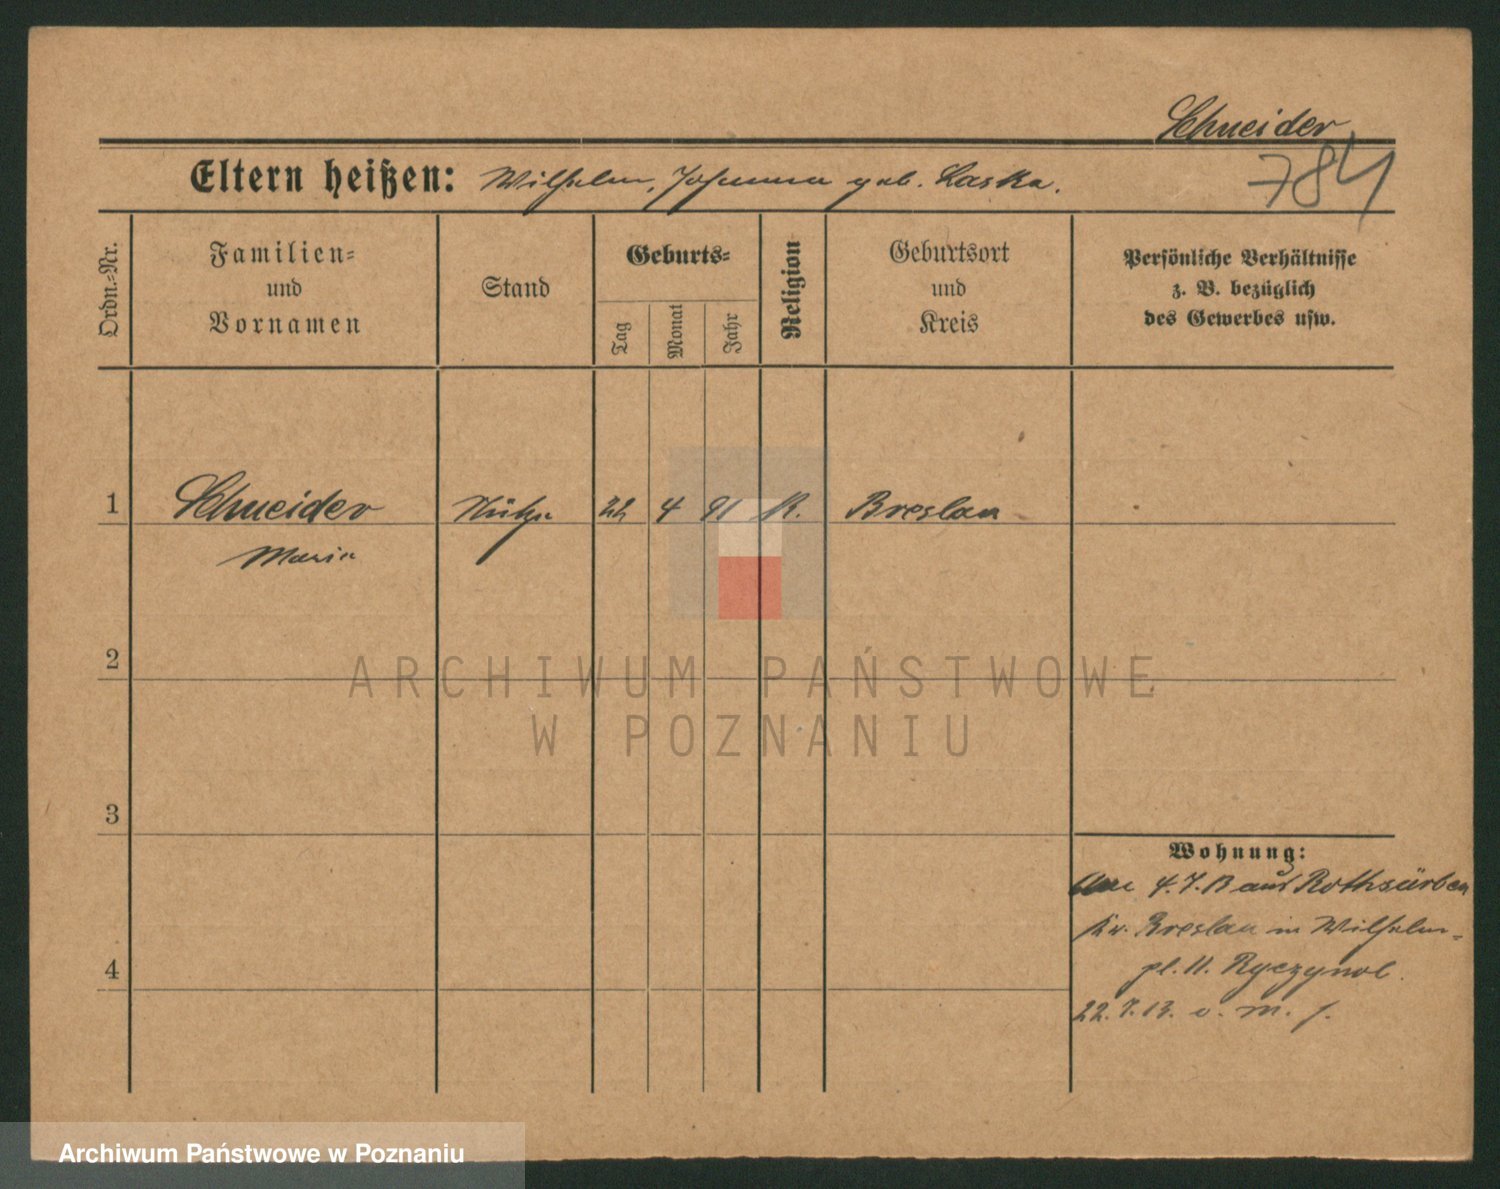 Schneider
784
Eltern heißen: Wilhelm, Johanna geb. Laska.
Ordn.-Nr.
Familien-
und
Vornamen
Stand
Geburts-
Tag
Monat
Jahr
Religion
Geburtsort
und
Kreis
Persönliche Verhältnisse
z. B. bezüglich
des Gewerbes usw.
1
Schneider
22 4 91 K. Breslau
Maria
2
3
4
Wohnung:
4.7.13 aus Rothsürben
Kr. Breslau in Wilhelm-
pl. 11.
22.7.13. o. m. f.
ARCHIWUM PAŃSTWOWE
W POZNANIU
Archiwum Państwowe w Poznaniu